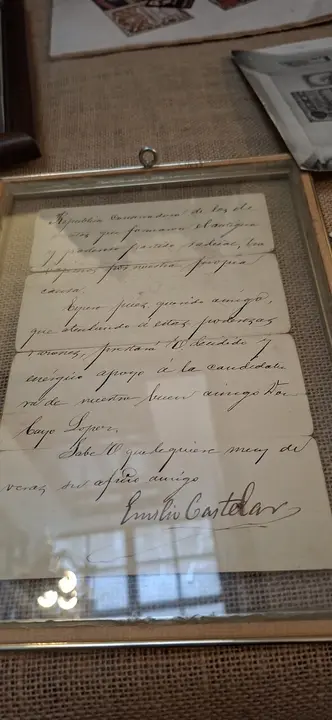 República conservadora de los ele
mentos que formaron el antiguo
y poderoso partido radical,
por nuestra propia
causa.
Espero pues, querido amigo,
que atendiendo á estas poderosas
razones, prestará V. decidido y
enérgico apoyo á la candidatu
ra de nuestro buen amigo Don
Cayo Lopez.
Sabe V. que le quiere muy de
veras su afmo amigo
Emilio Castelar